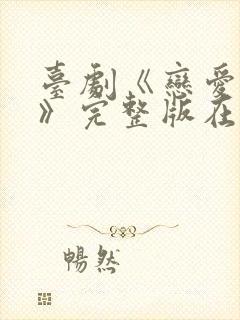 臺劇《戀愛
》完整版在
暢然